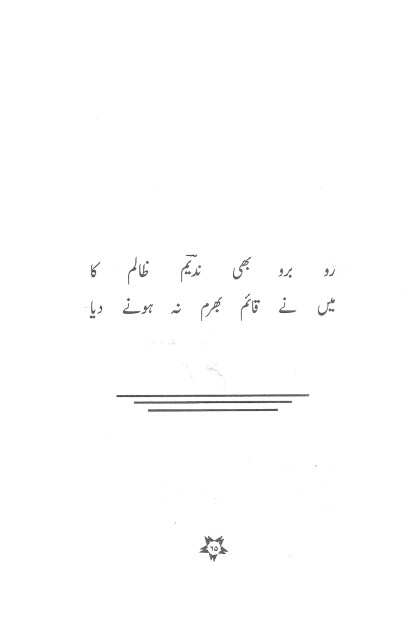 رو برو بھی ندیمؔ ظالم کا
میں نے قائم بھرم نہ ہونے دیا
۶۵